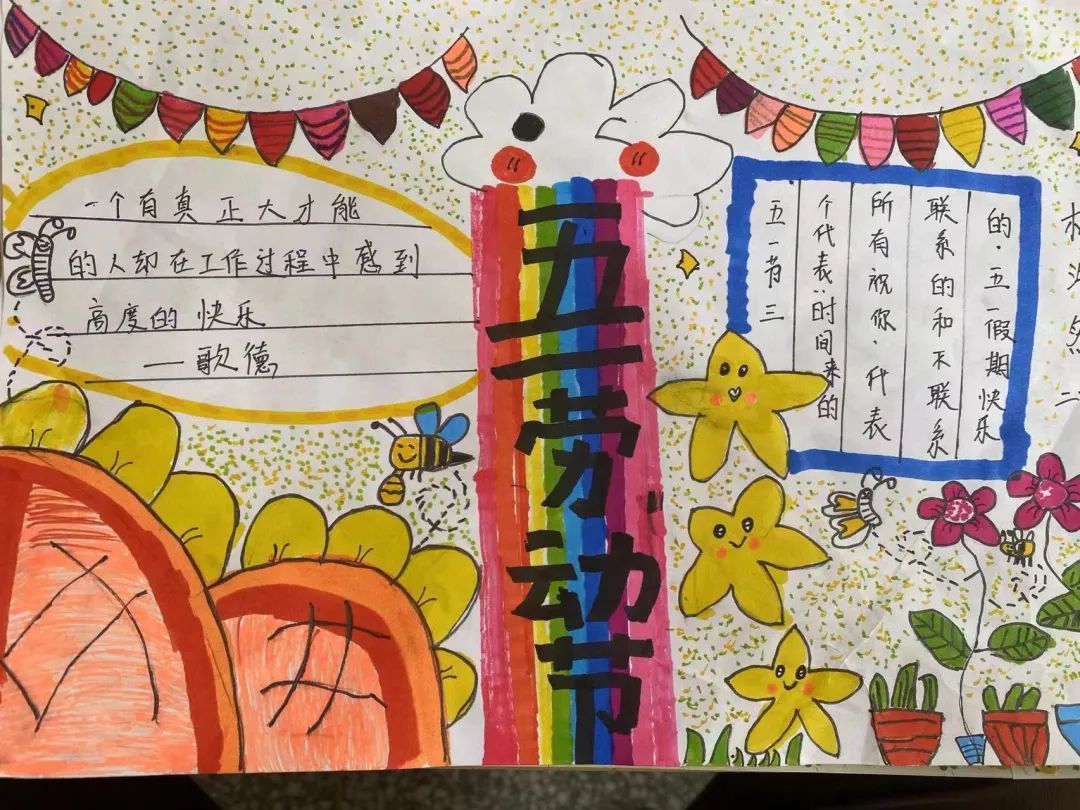 一个有真正大才能
的人却在工作过程中感到
高度的快乐
—歌德
五一劳动节
五一节三
个代表:时间来的
所有祝你.代表
联系的和不联系
的.五一假期快乐